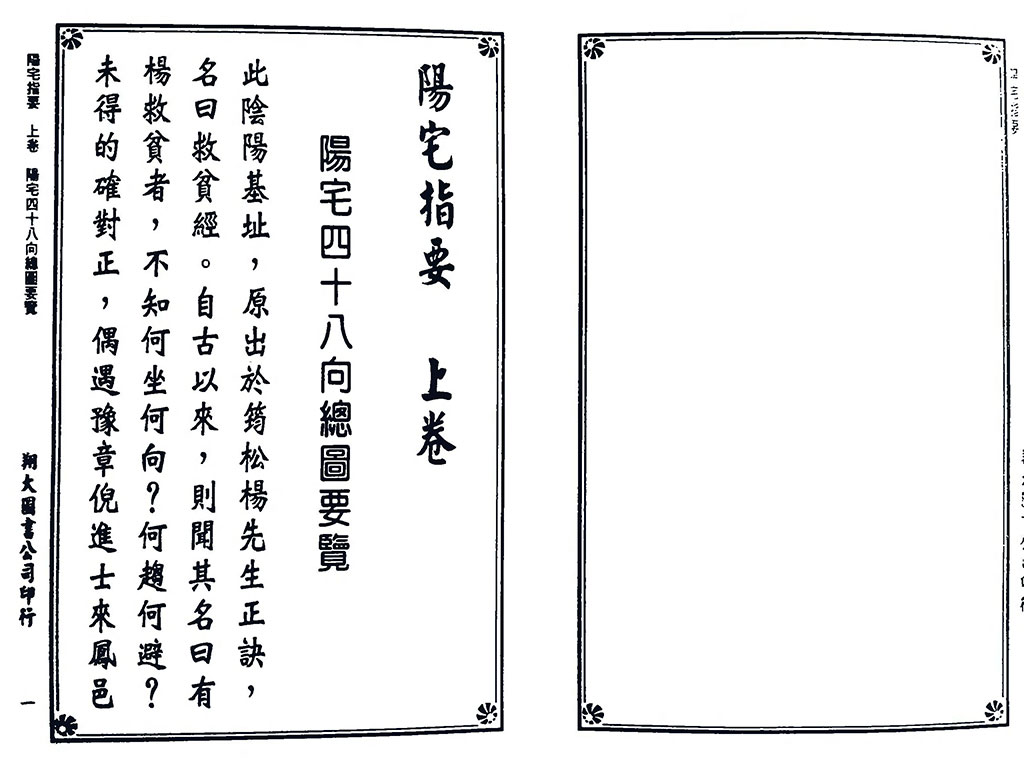 陽宅指要　上卷
陽宅四十八向總圖要覽
此陰陽基址，原出於筠松楊先生正訣，
名曰救貧經。自古以來，則聞其名曰有
楊救貧者，不知何坐何向？何趨何避？
未得的確對正，偶遇豫章倪進士來鳳邑
陽宅指要　上卷　陽宅四十八向總圖要覽
翔大圖書公司印行
一